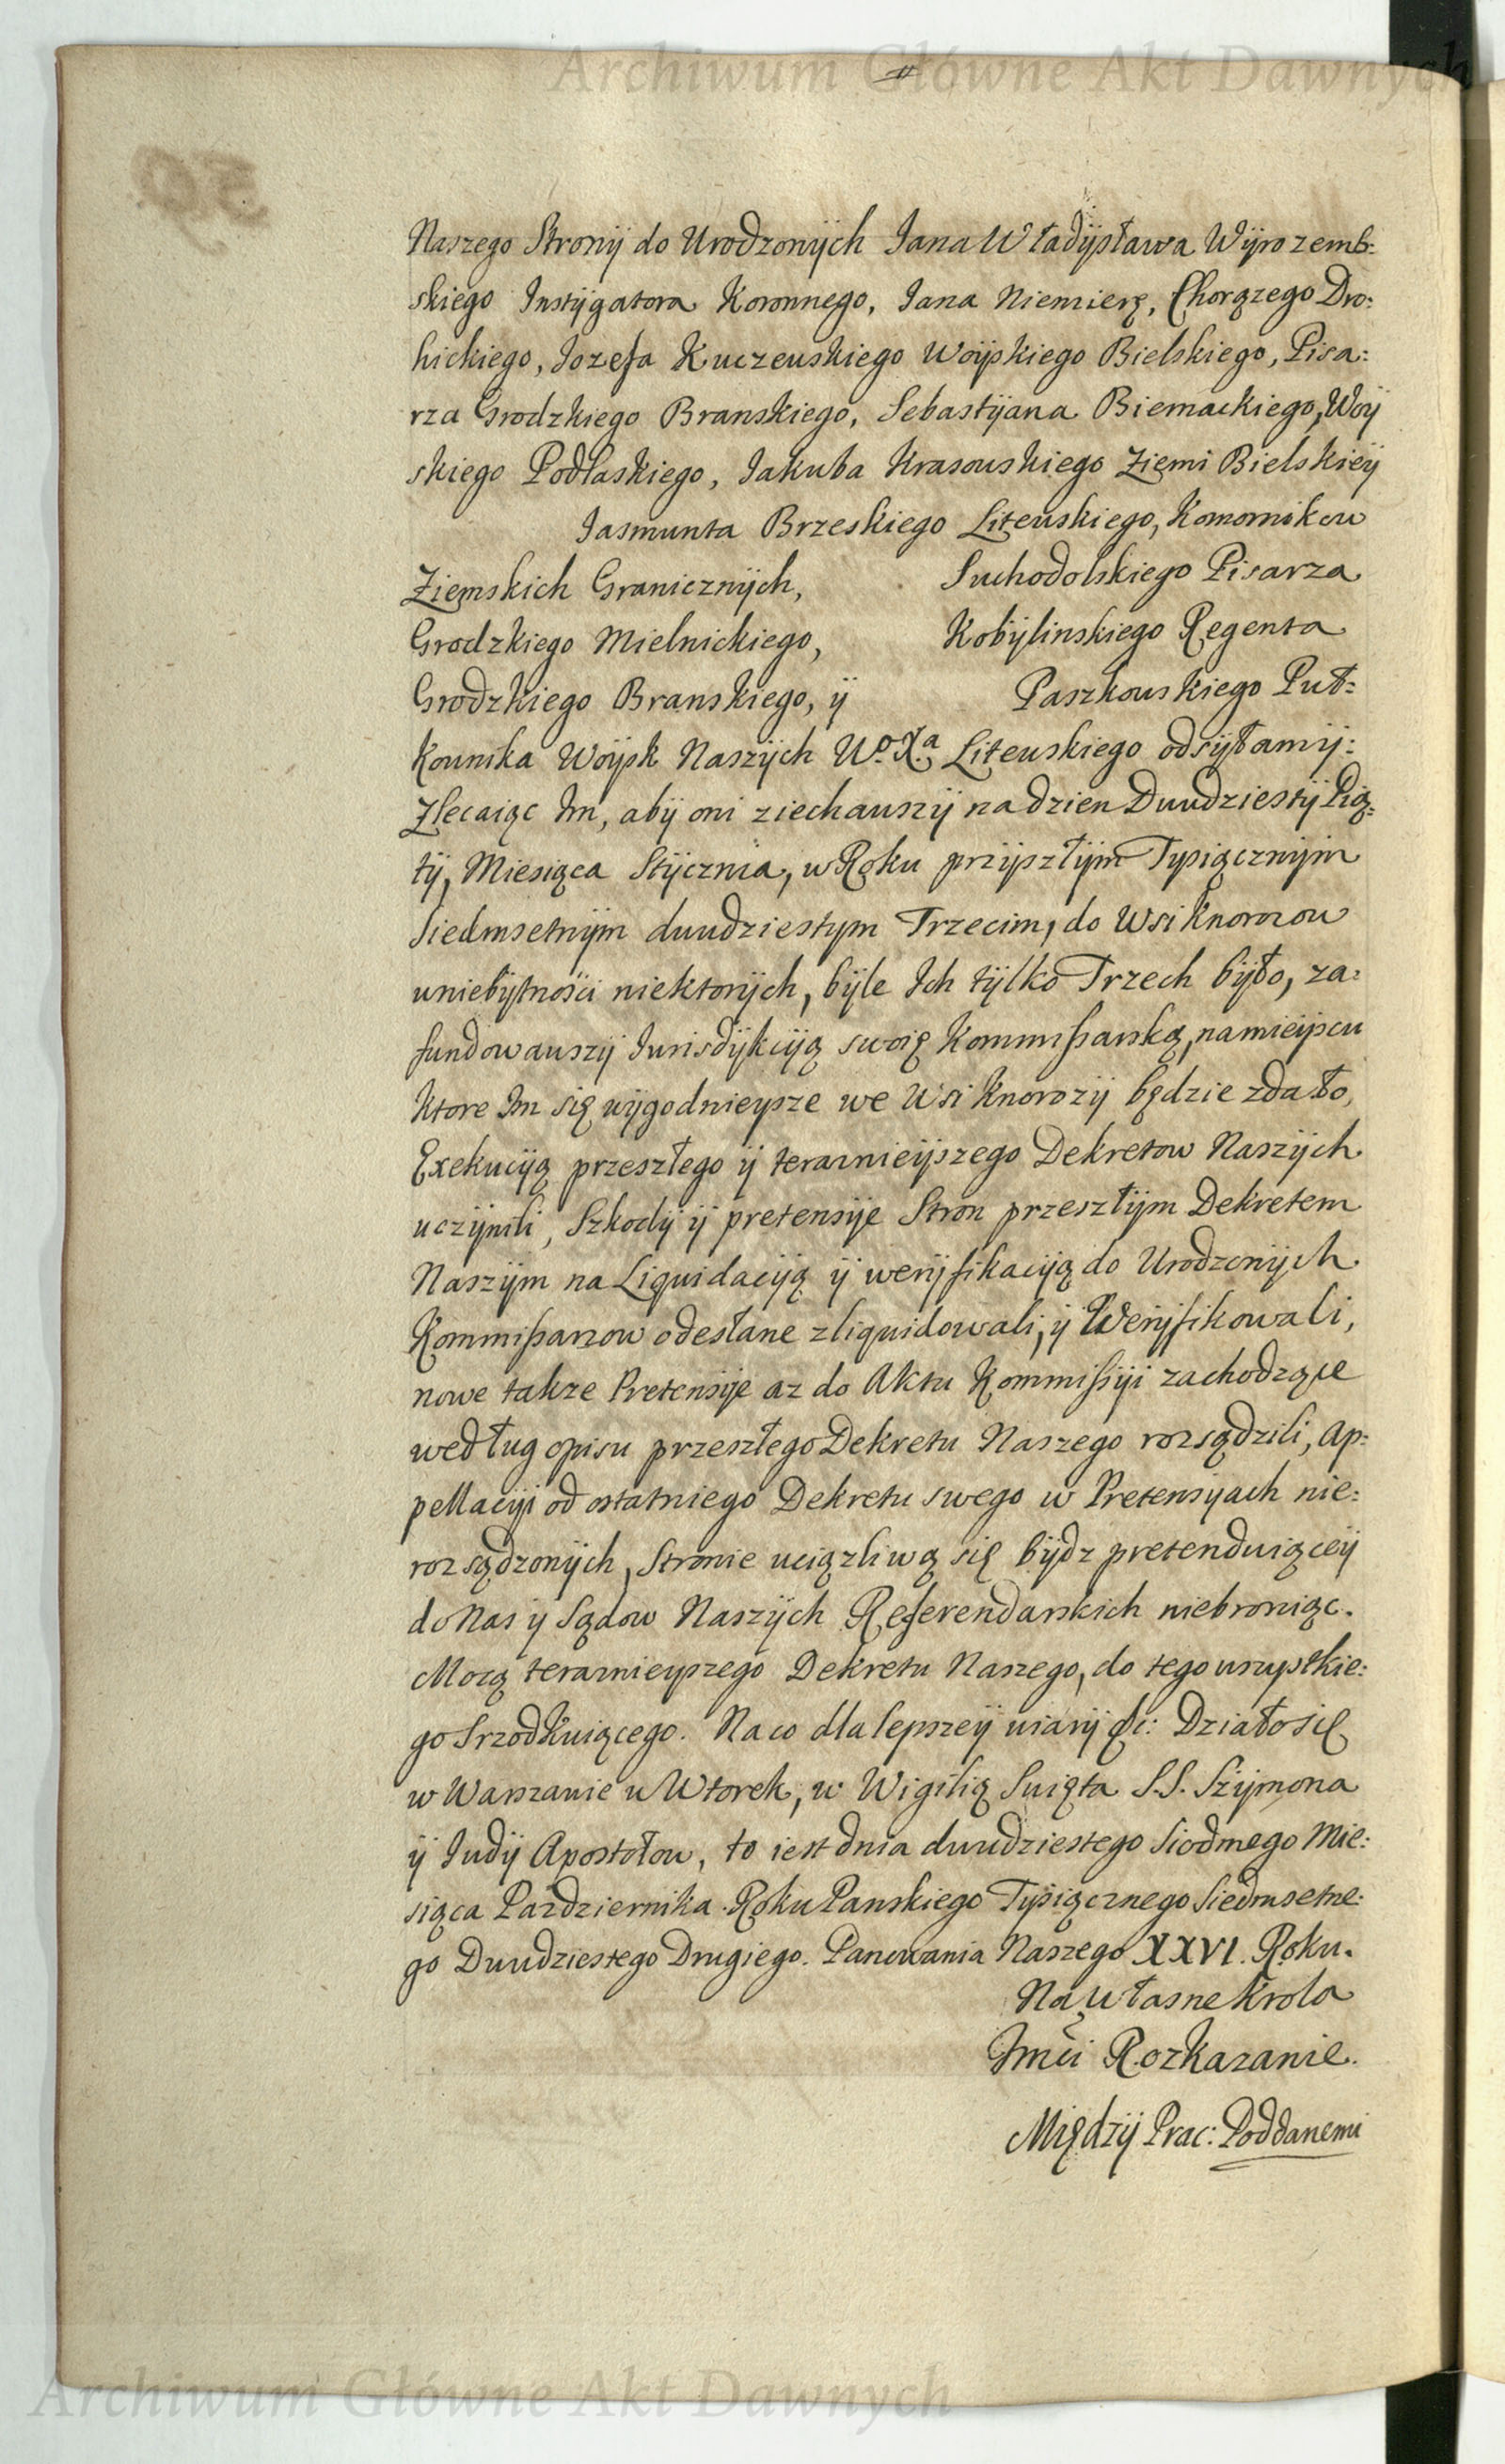 Archiwum Główne Akt Dawnych
Naszego Strony do Urodzonych Jana Władysława Wyrozemb:
skiego Instygatora Koronnego, Jana Niemierę, Chorązego Dro:
hickiego, Jozefa Kuczewskiego Woyskiego Bielskiego, Pisa:
rza Grodzkiego Branskiego, Sebastyana Biernackiego, Woy
skiego Podlaskiego, Jakuba Krasowskiego Ziemi Bielskiey
Jasmunta Brzeskiego Litewskiego, Komornikow
Ziemskich Granicznych, Suchodolskiego Pisarza
Grodzkiego Mielnickiego, Kobylinskiego Regenta
Grodzkiego Branskiego, y Paszkowskiego Puł:
kownika Woysk Naszych W.o X.a Litewskiego odsyłamy:
Zlecaiąc Im, aby oni ziechawszy na dzien Dwudziesty Pią:
ty, Miesiąca Stycznia, w Roku przyszłym Tysiącznym
Siedmsetnym dwudziestym Trzecim, do Wsi Knorozow
w niebytności niektorych, byle Ich tylko Trzech było, za:
fundowawszy Jurisdykcyą swoię Kommissarską, na mieyscu
ktore Im się wygodnieysze we Wsi Knorozy będzie zdało,
Exekucyą przeszłego y teraznieyszego Dekretow Naszych
uczynili, Szkody y pretensye Stron przeszłym Dekretem
Naszym na Liquidacyą y weryfikacyą do Urodzonych
Kommissarzow odesłane zliquidowali, y Weryfikowali,
nowe takze Pretensye az do Aktu Kommissyi zachodzące
według opisu przeszłego Dekretu Naszego rozsądzili, Ap:
pellacyi od ostatniego Dekretu swego w Pretensyach nie:
rozsądzonych, Stronie uciązliwą się bydz pretenduiącey
do Nas y Sądow Naszych Referendarskich niebroniąc.
Mocą teraznieyszego Dekretu Naszego, do tego wszystkie:
go Srzodkuiącego. Na co dla lepszey wiary &c: Działo się
w Warszawie w Wtorek, w Wigilią Swięta S.S. Szymona
y Judy Apostołow, to iest dnia dwudziestego Siodmego Mie:
siąca Pazdziernika Roku Panskiego Tysiącznego Siedmsetne:
go Dwudziestego Drugiego. Panowania Naszego XXVI. Roku.
Na Własne Krola
Jmci Rozkazanie.
Między Prac: Poddanemi
Archiwum Główne Akt Dawnych